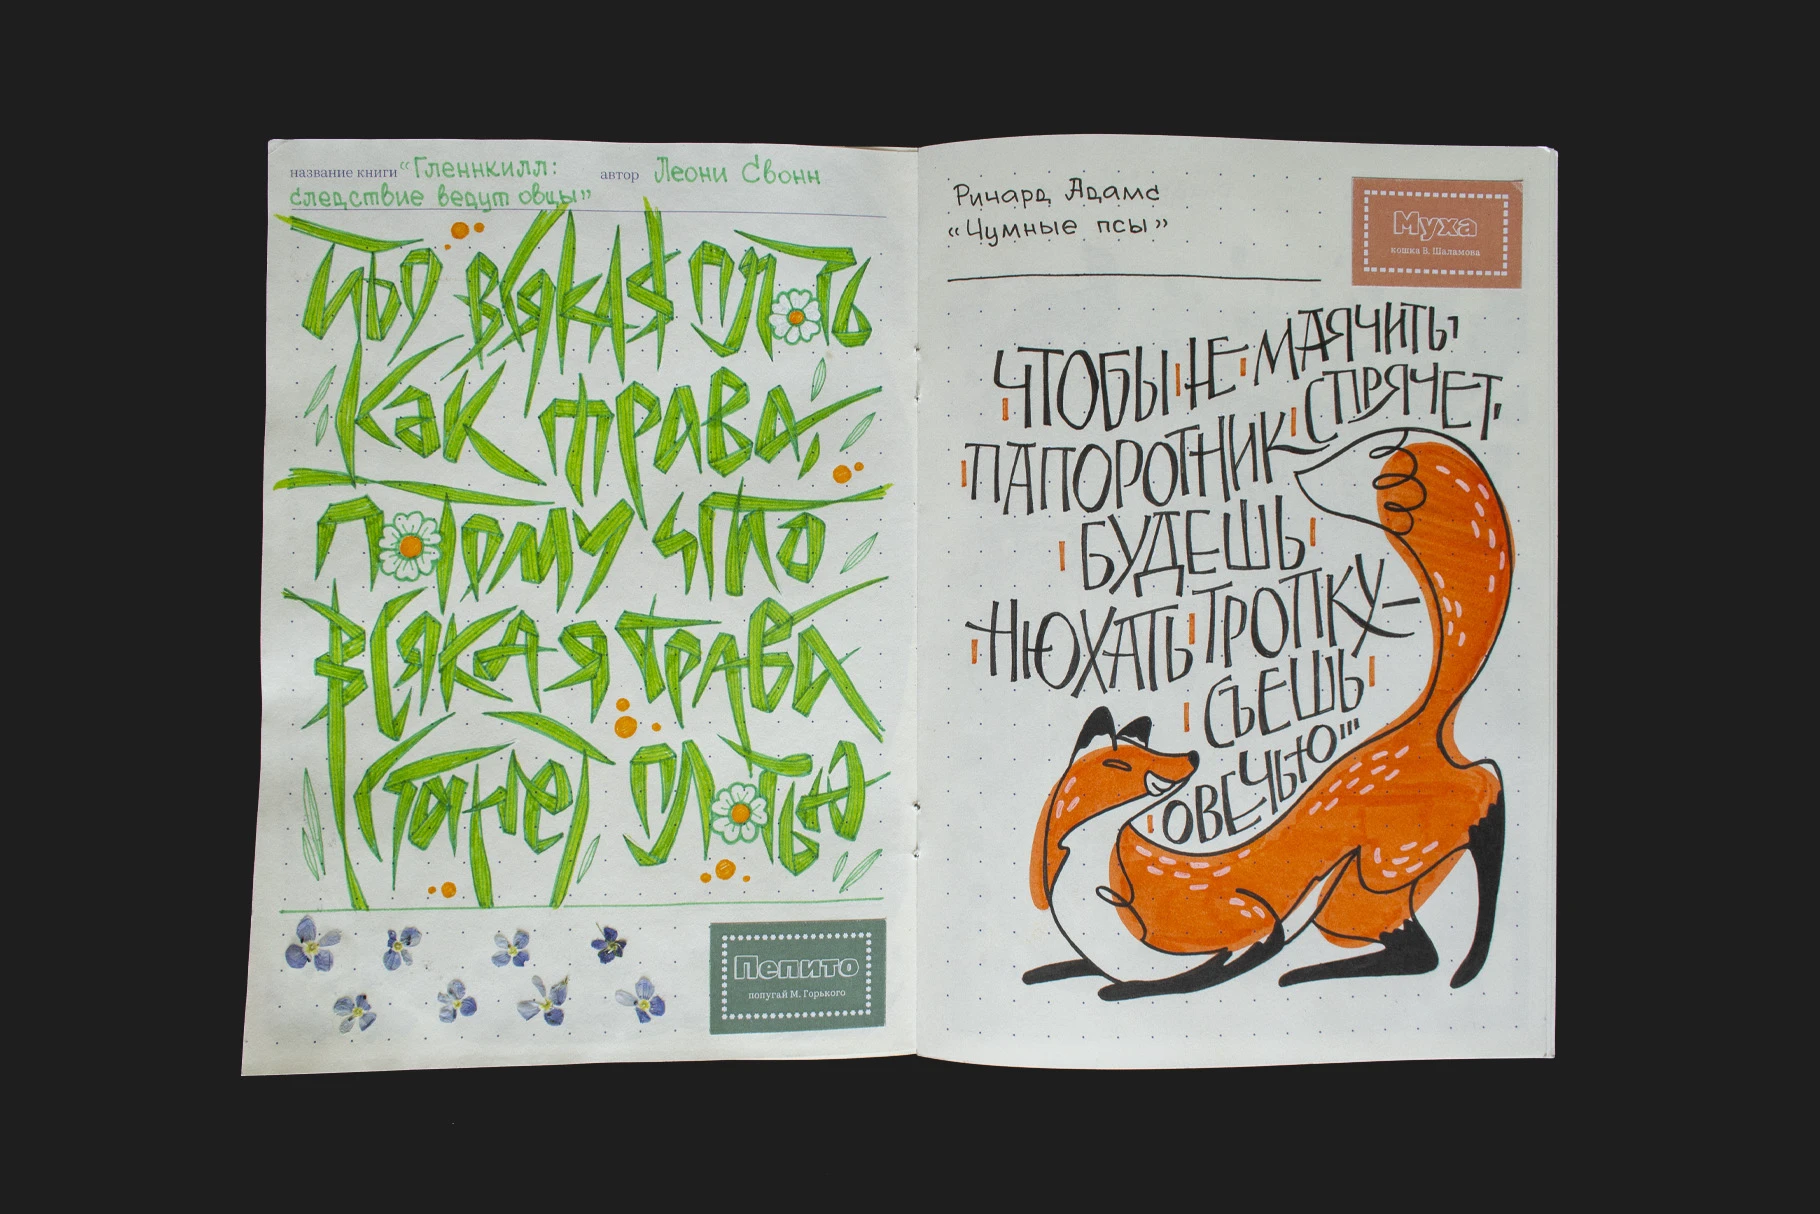 название книги “Гленнкилл: автор Леони Свонн
следствие ведут овцы”
Ибо всякая плоть
как трава,
потому что
всякая трава
станет плотью
Пепито
попугай М. Горького
Ричард Адамс
“Чумные псы”
Муха
кошка В. Шаламова
ЧТОБЫ НЕ МАЯЧИТЬ,
СПРЯЧЕТ,
ПАПОРОТНИК
БУДЕШЬ
НЮХАТЬ ТРОПКУ –
СЪЕШЬ
ОВЕЧЬЮ...